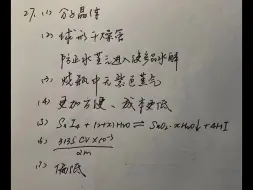 27. (1) 分子晶体
(2) 球形干燥管
防止水蒸气进入使产品水解
(3) 烧瓶中无紫色蒸气
(4) 更加方便、成本更低
(5) SnI₄ + (2+x)H₂O ⇌ SnO₂·xH₂O↓ + 4HI
(6) 3135CV×10⁻³ / 2m
(7) 偏低